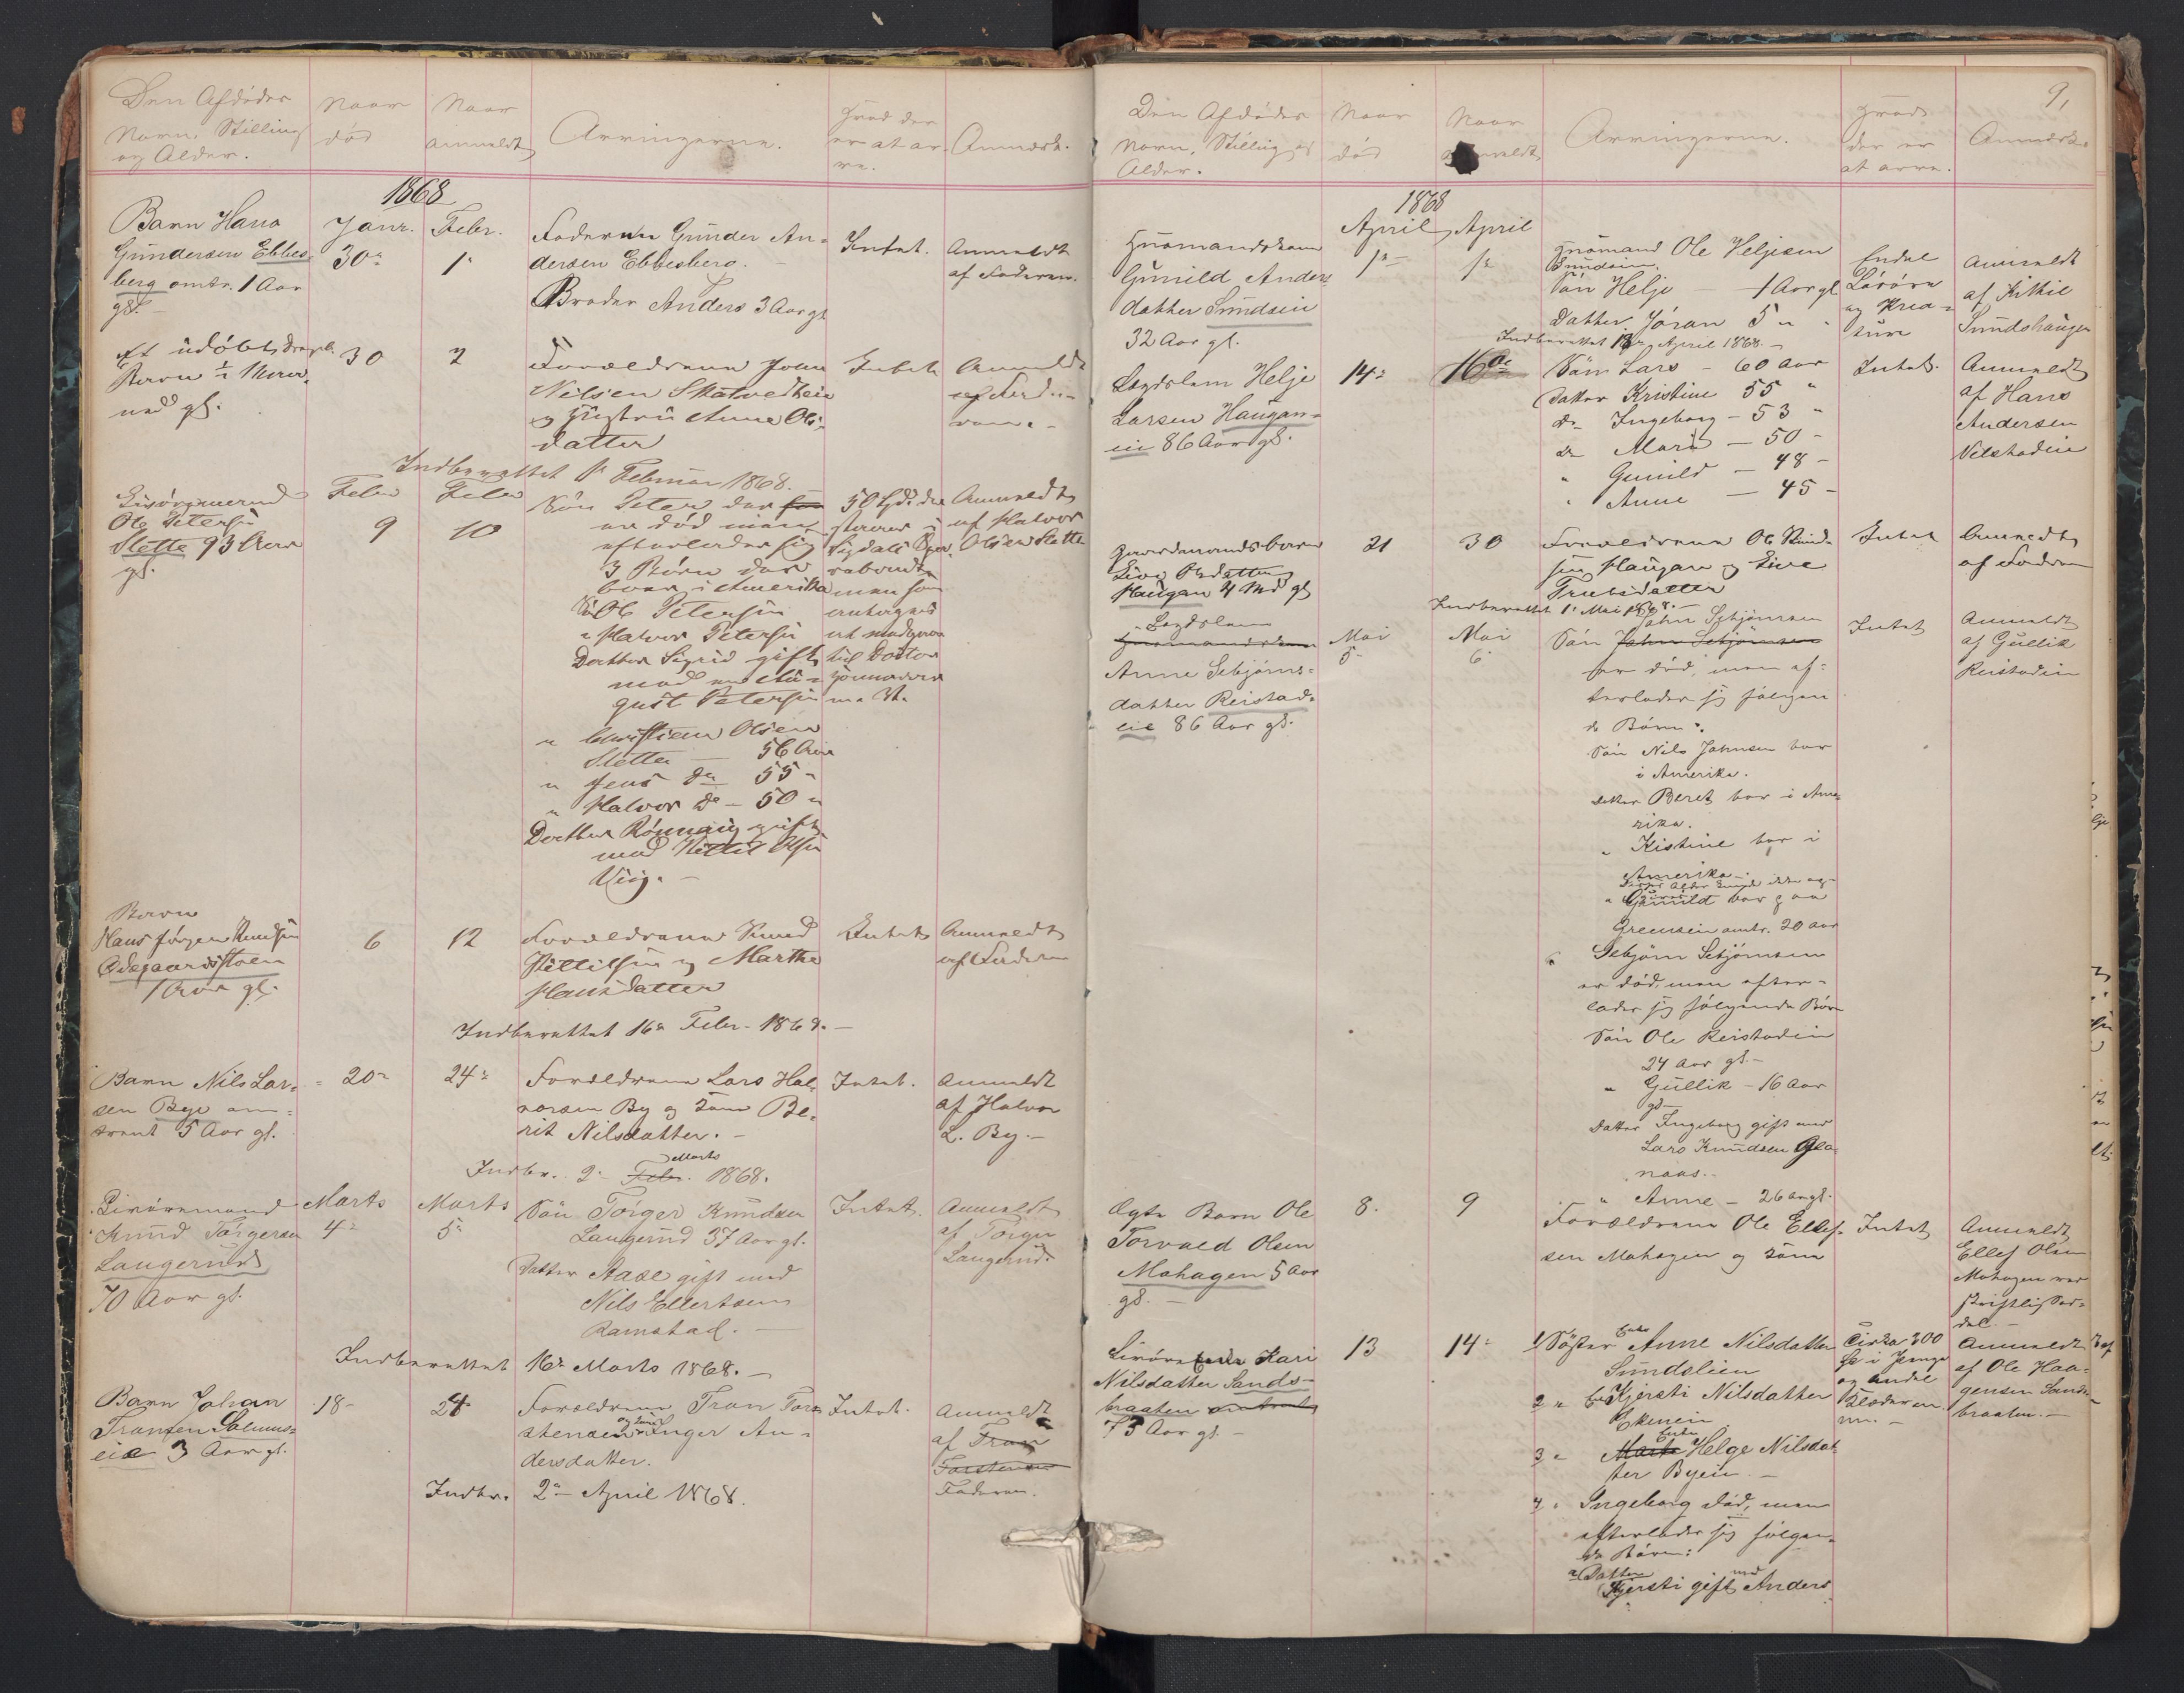 Den Afdødes
Navn, Stilling
og Alder.
Naar
død
Naar
anmeldt
Arvingerne.
Hvad der
er at ar-
ve.
Anmærk.
1868
Barn Hans
Gundersen Ebbes-
berg omtr. 1 Aar
gl. -
Janr.
30.
Febr.
1.
Faderen Gunder An-
dersen Ebbesberg.
Broder Anders 3 Aar gl
Intet.
Anmeldt
af Faderen.
Et udøbt
Barn
gl.
30
2
Forældrene John
Nilsen
og Hustru Anne Ols-
datter
Intet
Anmeldt
af Fade-
ren. -
Indberettet 1. Februar 1868. -
Ole Petersen
Slette 93 Aar
gl.
Febr
9
Febr
10
Søn Peter der
er død men
efterlader sig
3 Børn der
boer i Amerika
Søn Ole Petersen
" Halvor Petersen
Datter Sigrid gift
med
gust Petersen
" Christian Olsen
Slette - 56 Aar
" Jens do 55 "
" Halvor do - 50 "
Datter Rønnaug gift
med Kittil Olsen
50
i
Sigdals Spa-
men som
Anmeldt
af Halvor
Olsen Slette
Barn
Hans Jørgen Knudsen
Ødegaardsstøen
1 Aar gl.
6
12
Forældrene Knud
Kittilsen og Marthe
Hansdatter
Intet
Anmeldt
af Faderen
Indberettet 16. Febr. 1868. -
Barn Nils Lar-
sen Bye om-
trent 5 Aar gl.
20.
24.
Forældrene Lars Hal-
vorsen By og Kone Be-
rit Nilsdatter. -
Intet.
Anmeldt
af Halvor
L. By. -
Marts
Indbr. 2. Febr. 1868.
Livøremand
Knud Torgersen
Langerud
70 Aar gl.
Marts
4.
Marts
5.
Søn Torger Knudsen
Langerud 37 Aar gl.
Datter Aase gift med
Nils Ellertsen
Ramstad. -
Intet.
Anmeldt
af Torger
Langerud.
Indberettet 16. Marts 1868. -
Barn Johan
Fransen
eie 3 Aar gl.
18 -
24
Forældrene Tron Tor-
stensen og Kone Inger An-
dersdatter.
Intet.
Anmeldt
af Tron
Torstensen
Faderen.
Indbr. 2. April 1868.
9,
Den Afdødes
Navn, Stilling og
Alder.
Naar
død
Naar
anmeldt
Arvingerne.
Hvad
der er
at arve.
Anmærk.
1868
Husmandskone
Gunild Anders-
datter Sundseie
32 Aar gl.
April
1.
April
1.
Husmand Ole Heljesen
Sundseie.
Søn Helje - 1 Aar gl
Datter Jøran 5 " "
Endel
Løsøre
og Krea-
ture
Anmeldt
af Kittil
Sundshaugen
Indberettet 13. April 1868. -
Lægdslem Helje
Larsen Haugan-
eie 86 Aar gl.
14.
16.
Søn Lars - 60 Aar
Datter Kristine 55 "
do Ingeborg - 53 "
do Mari - 50 -
" Gunild - 48 -
" Anne - 45 -
Intet.
Anmeldt
af Hans
Andersen
Gaardmandsbarn
Live Olsdatter
Haugan 4 Md gl
21
30
Forældrene Ole Knud-
sen Haugan og Live
Trulsdatter
Intet
Anmeldt
af Faderen
Indberettet 1. Mai 1868. -
Lægdslem
Husmandskone
Anne Sebjørns-
datter Reistad-
eie 86 Aar gl.
Mai
5.
Mai
6.
John Sebjørnsen
Søn John Sebjørnsen
er død, men ef-
terlader sig følgen-
de Børn:
Søn Nils Johnsen bor
i Amerika.
Datter Beret bor i Ame-
rika.
" Kistine bor i
Amerika -
" Gunild bor paa
omtr. 20 Aar
" Sebjørn Sebjørnsen
er død, men efter-
lader sig følgende Børn
Søn Ole Reistadeie
24 Aar gl. -
" Gullik - 16 Aar
gl -
Datter Ingeborg gift med
Lars Knudsen Gla-
naas. -
" Anne - 26 Aar gl.
Intet
Anmeldt
af Gullik
Reistadeie
Ægte Barn Ole
Torvald Olsen
Mohagen 5 Aar
gl. -
8.
9
Forældrene Ole Ellef-
sen Mohagen og Kone
Intet
Anmeldt
Ellef Olsen
Mohagen ved
skriftlig Sed-
del. -
Kari
Nilsdatter Sands-
braaten omtrent
73 Aar gl -
13
14.
1/ Søster Enke Anne Nilsdatter
Sundslien
2 " Kjersti Nilsdatter
3 " Marte Enke Helge Nilsdat-
ter Byeie. -
4 " Ingeborg død, men
efterlader sig følgen-
de Børn:
a Datter
Kjersti gift med Anders
Cirka 300
i Penge
og endel
Klæder
Anmeldt
af Ole Haa-
gensen Sands-
braaten. -